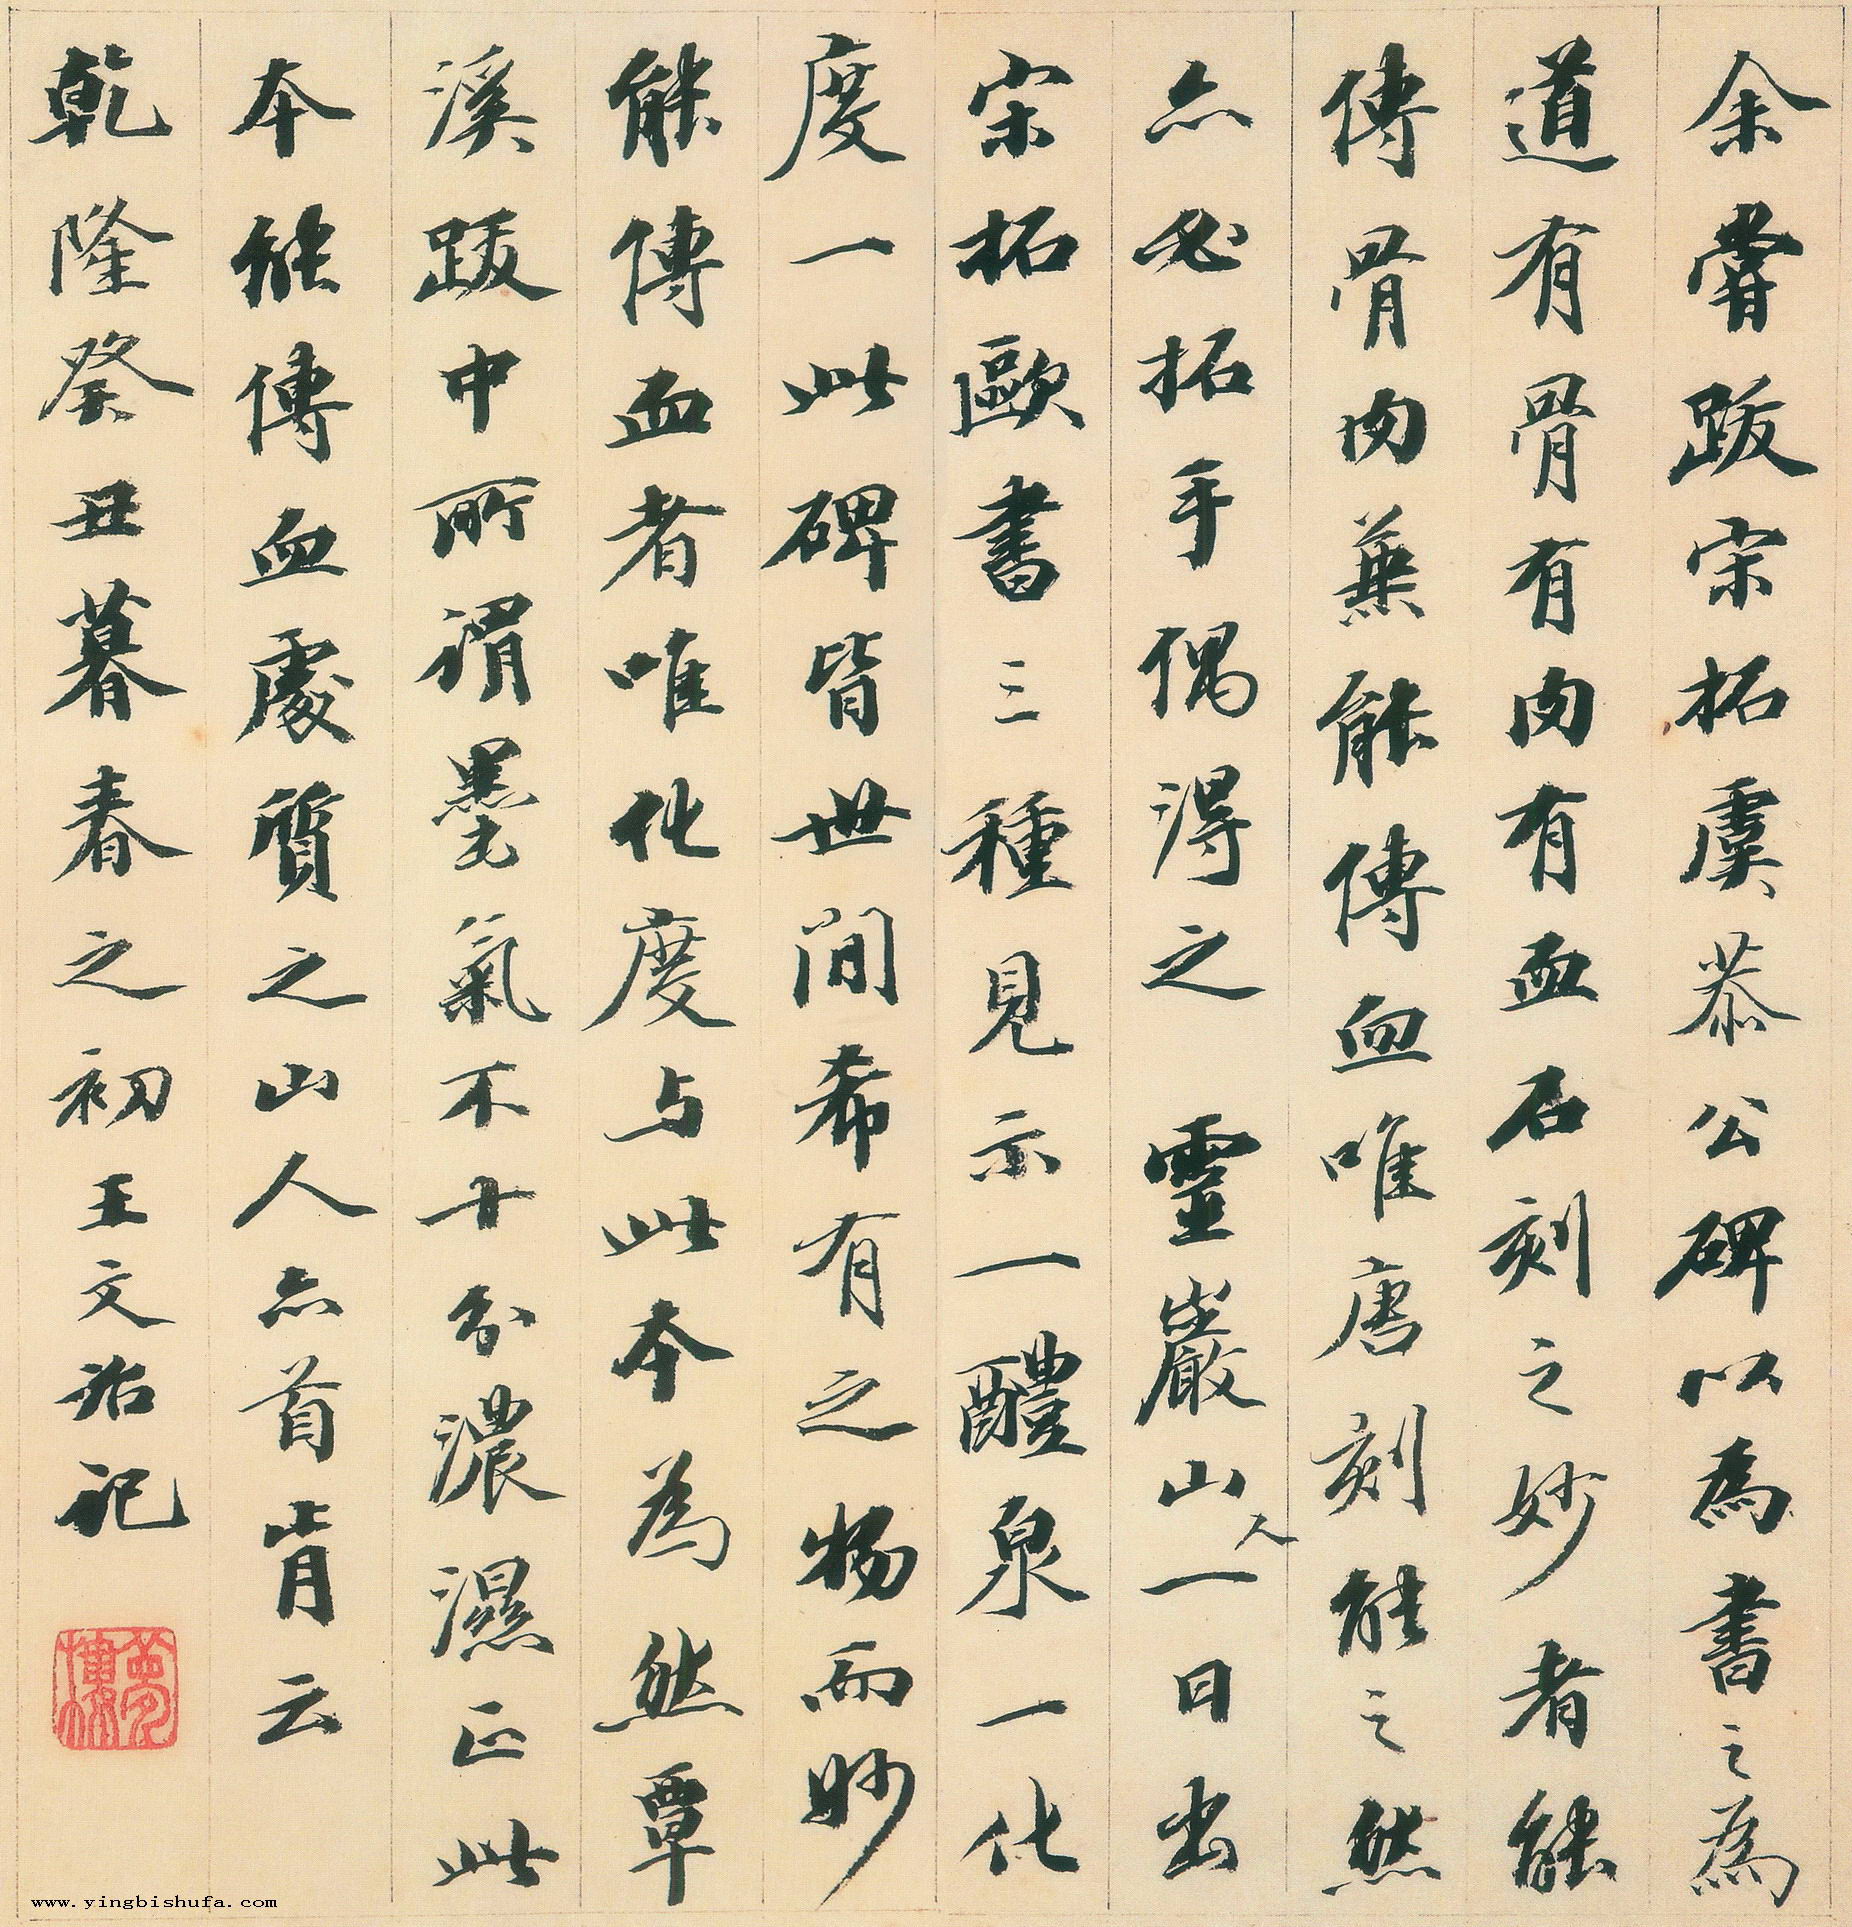 余嘗跋宋拓虞恭公碑以為書之為
道有骨有肉有血石刻之妙者能
傳骨肉蒹能傳血唯唐刻能之然
亦必拓手偶得之 靈巖山人一日出
宋拓歐書三種見示一醴泉一化
度一此碑皆世間希有之物而妙
能傳血者唯化度与此本為然覃
溪跋中所謂墨氣不十分濃濕正此
本能傳血處質之山人亦首肯云
乾隆癸丑暮春之初王文治記
夢樓
www.yingbishufa.com